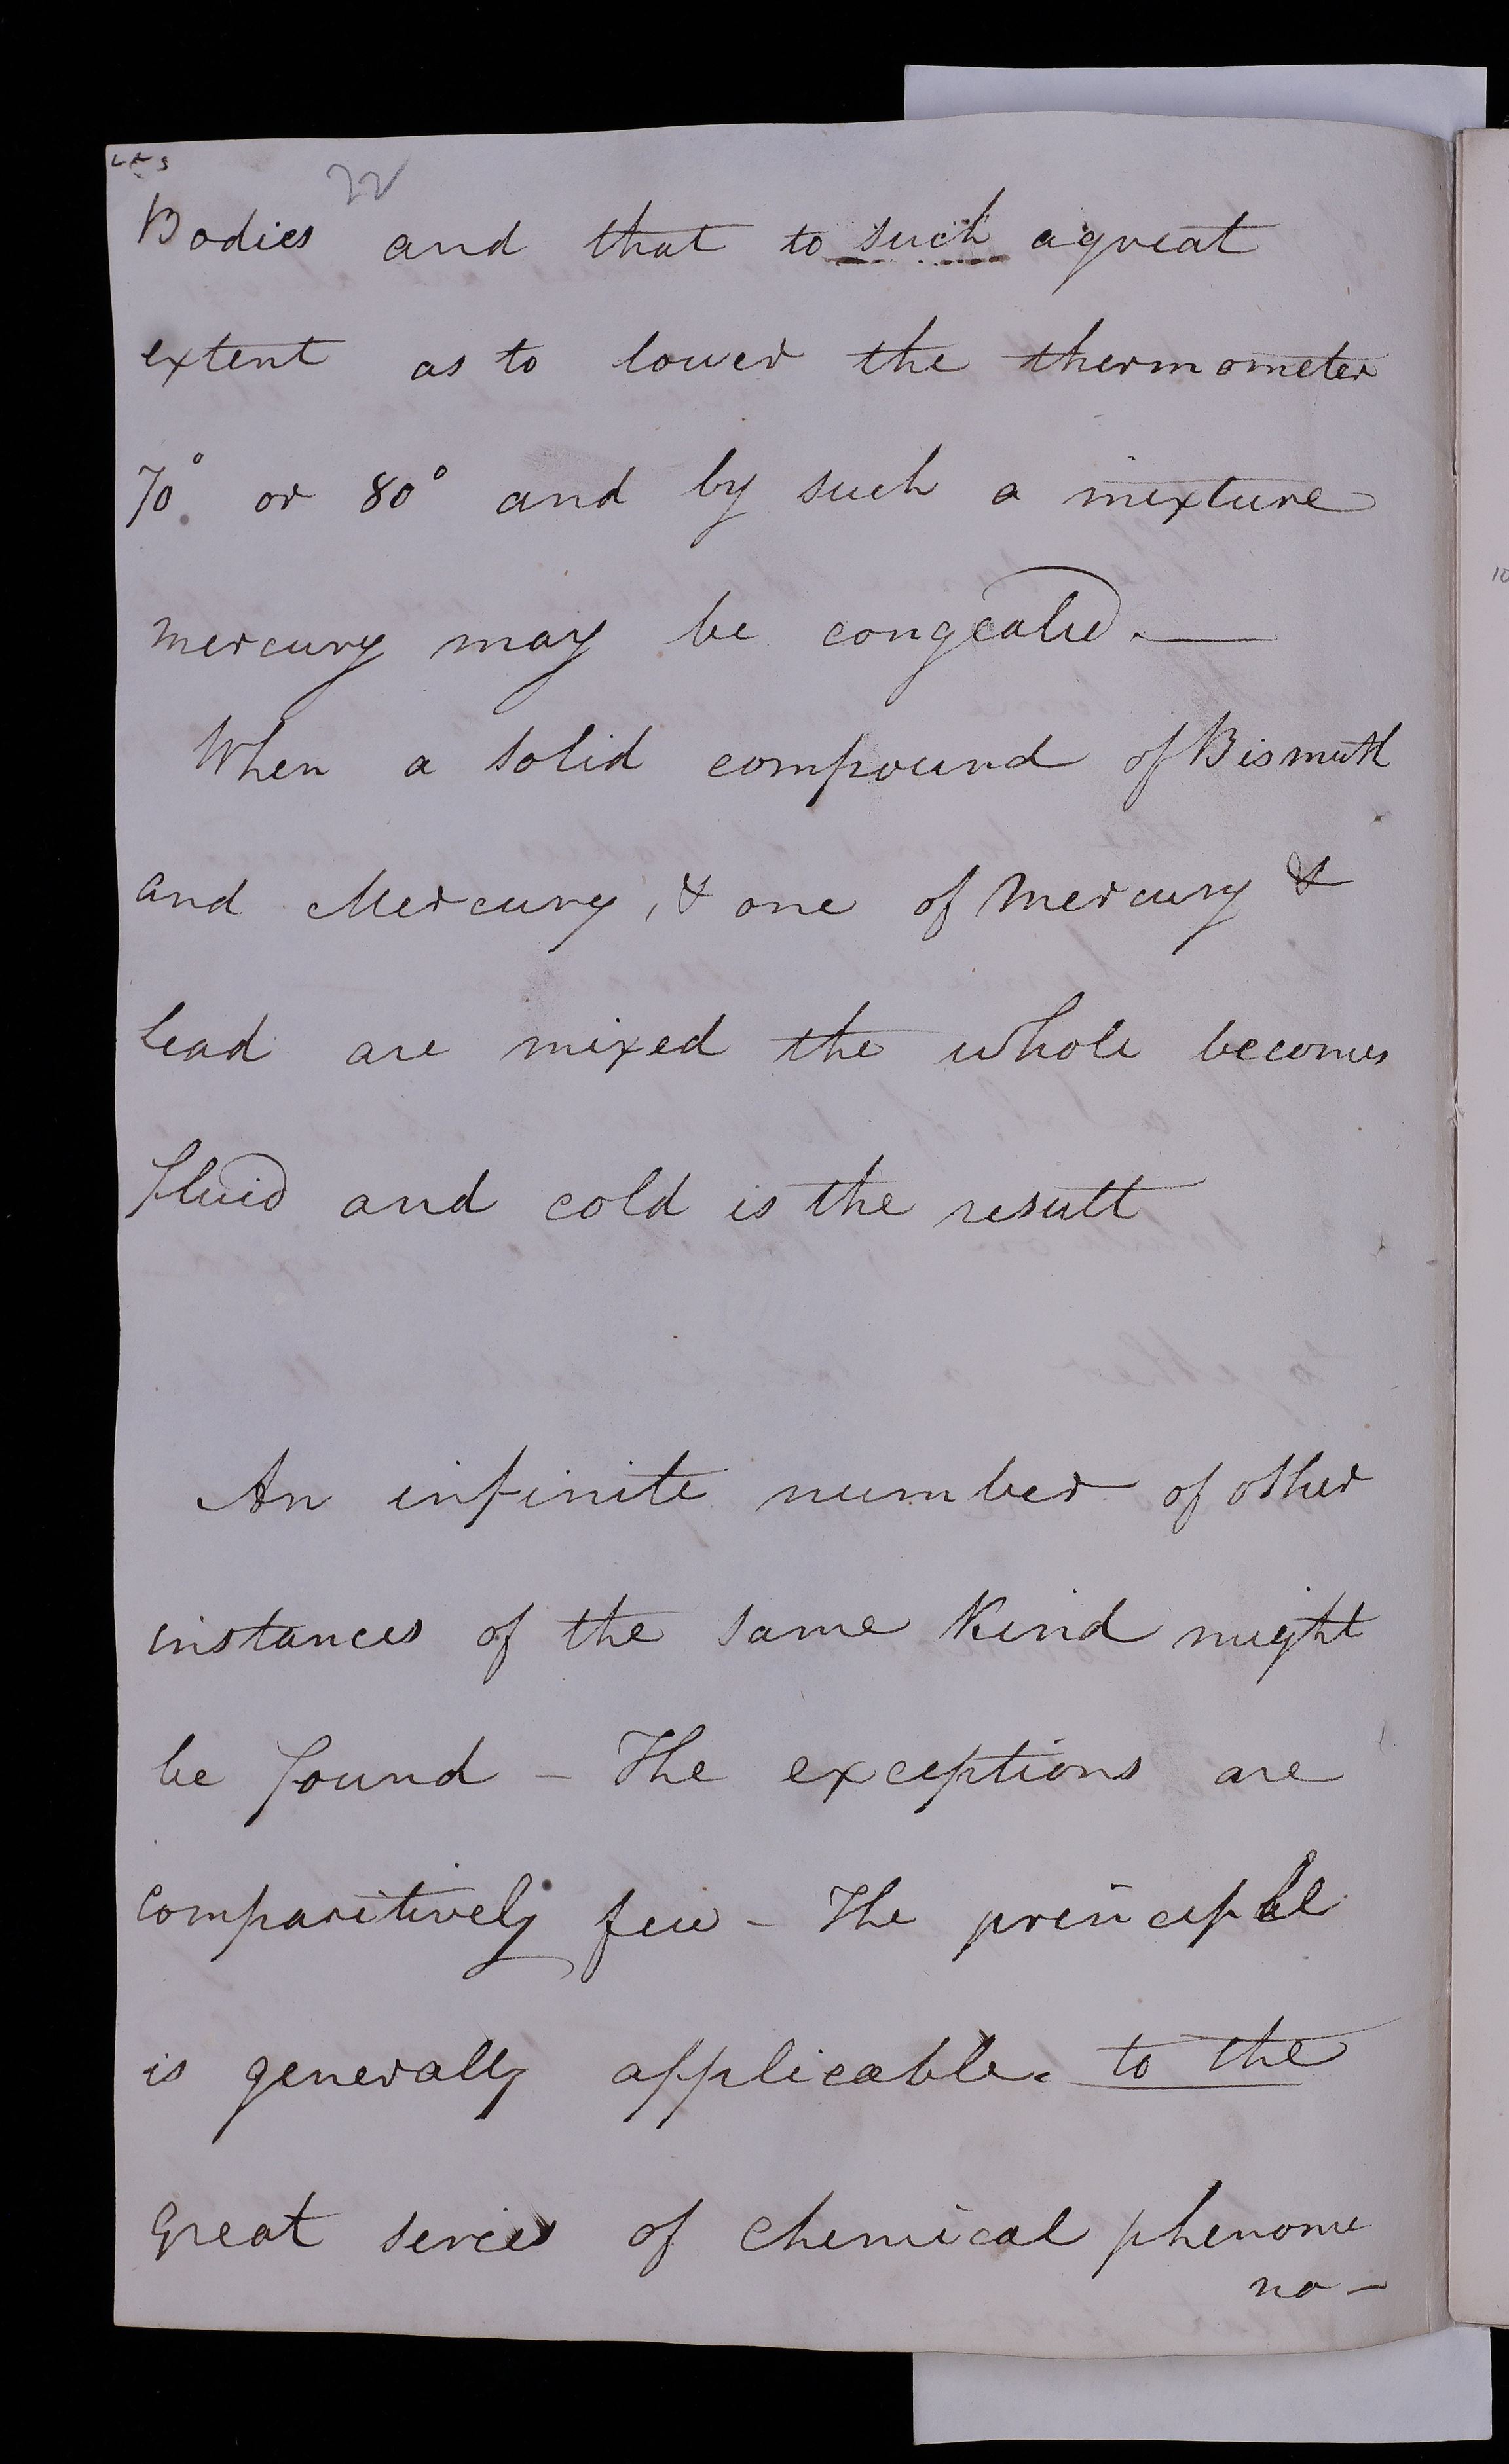 22
Bodies and that to such a great
extent as to lower the thermometer
70° or 80° and by such a mixture
mercury may be congealed. —
When a solid compound of Bismuth
and Mercury, & one of Mercury &
lead are mixed the whole becomes
fluid and cold is the result
An infinite number of other
instances of the same Kind might
be found - The exceptions are
comparitively few - The principle
is generally applicable. to the
great series of chemical phenome
na -